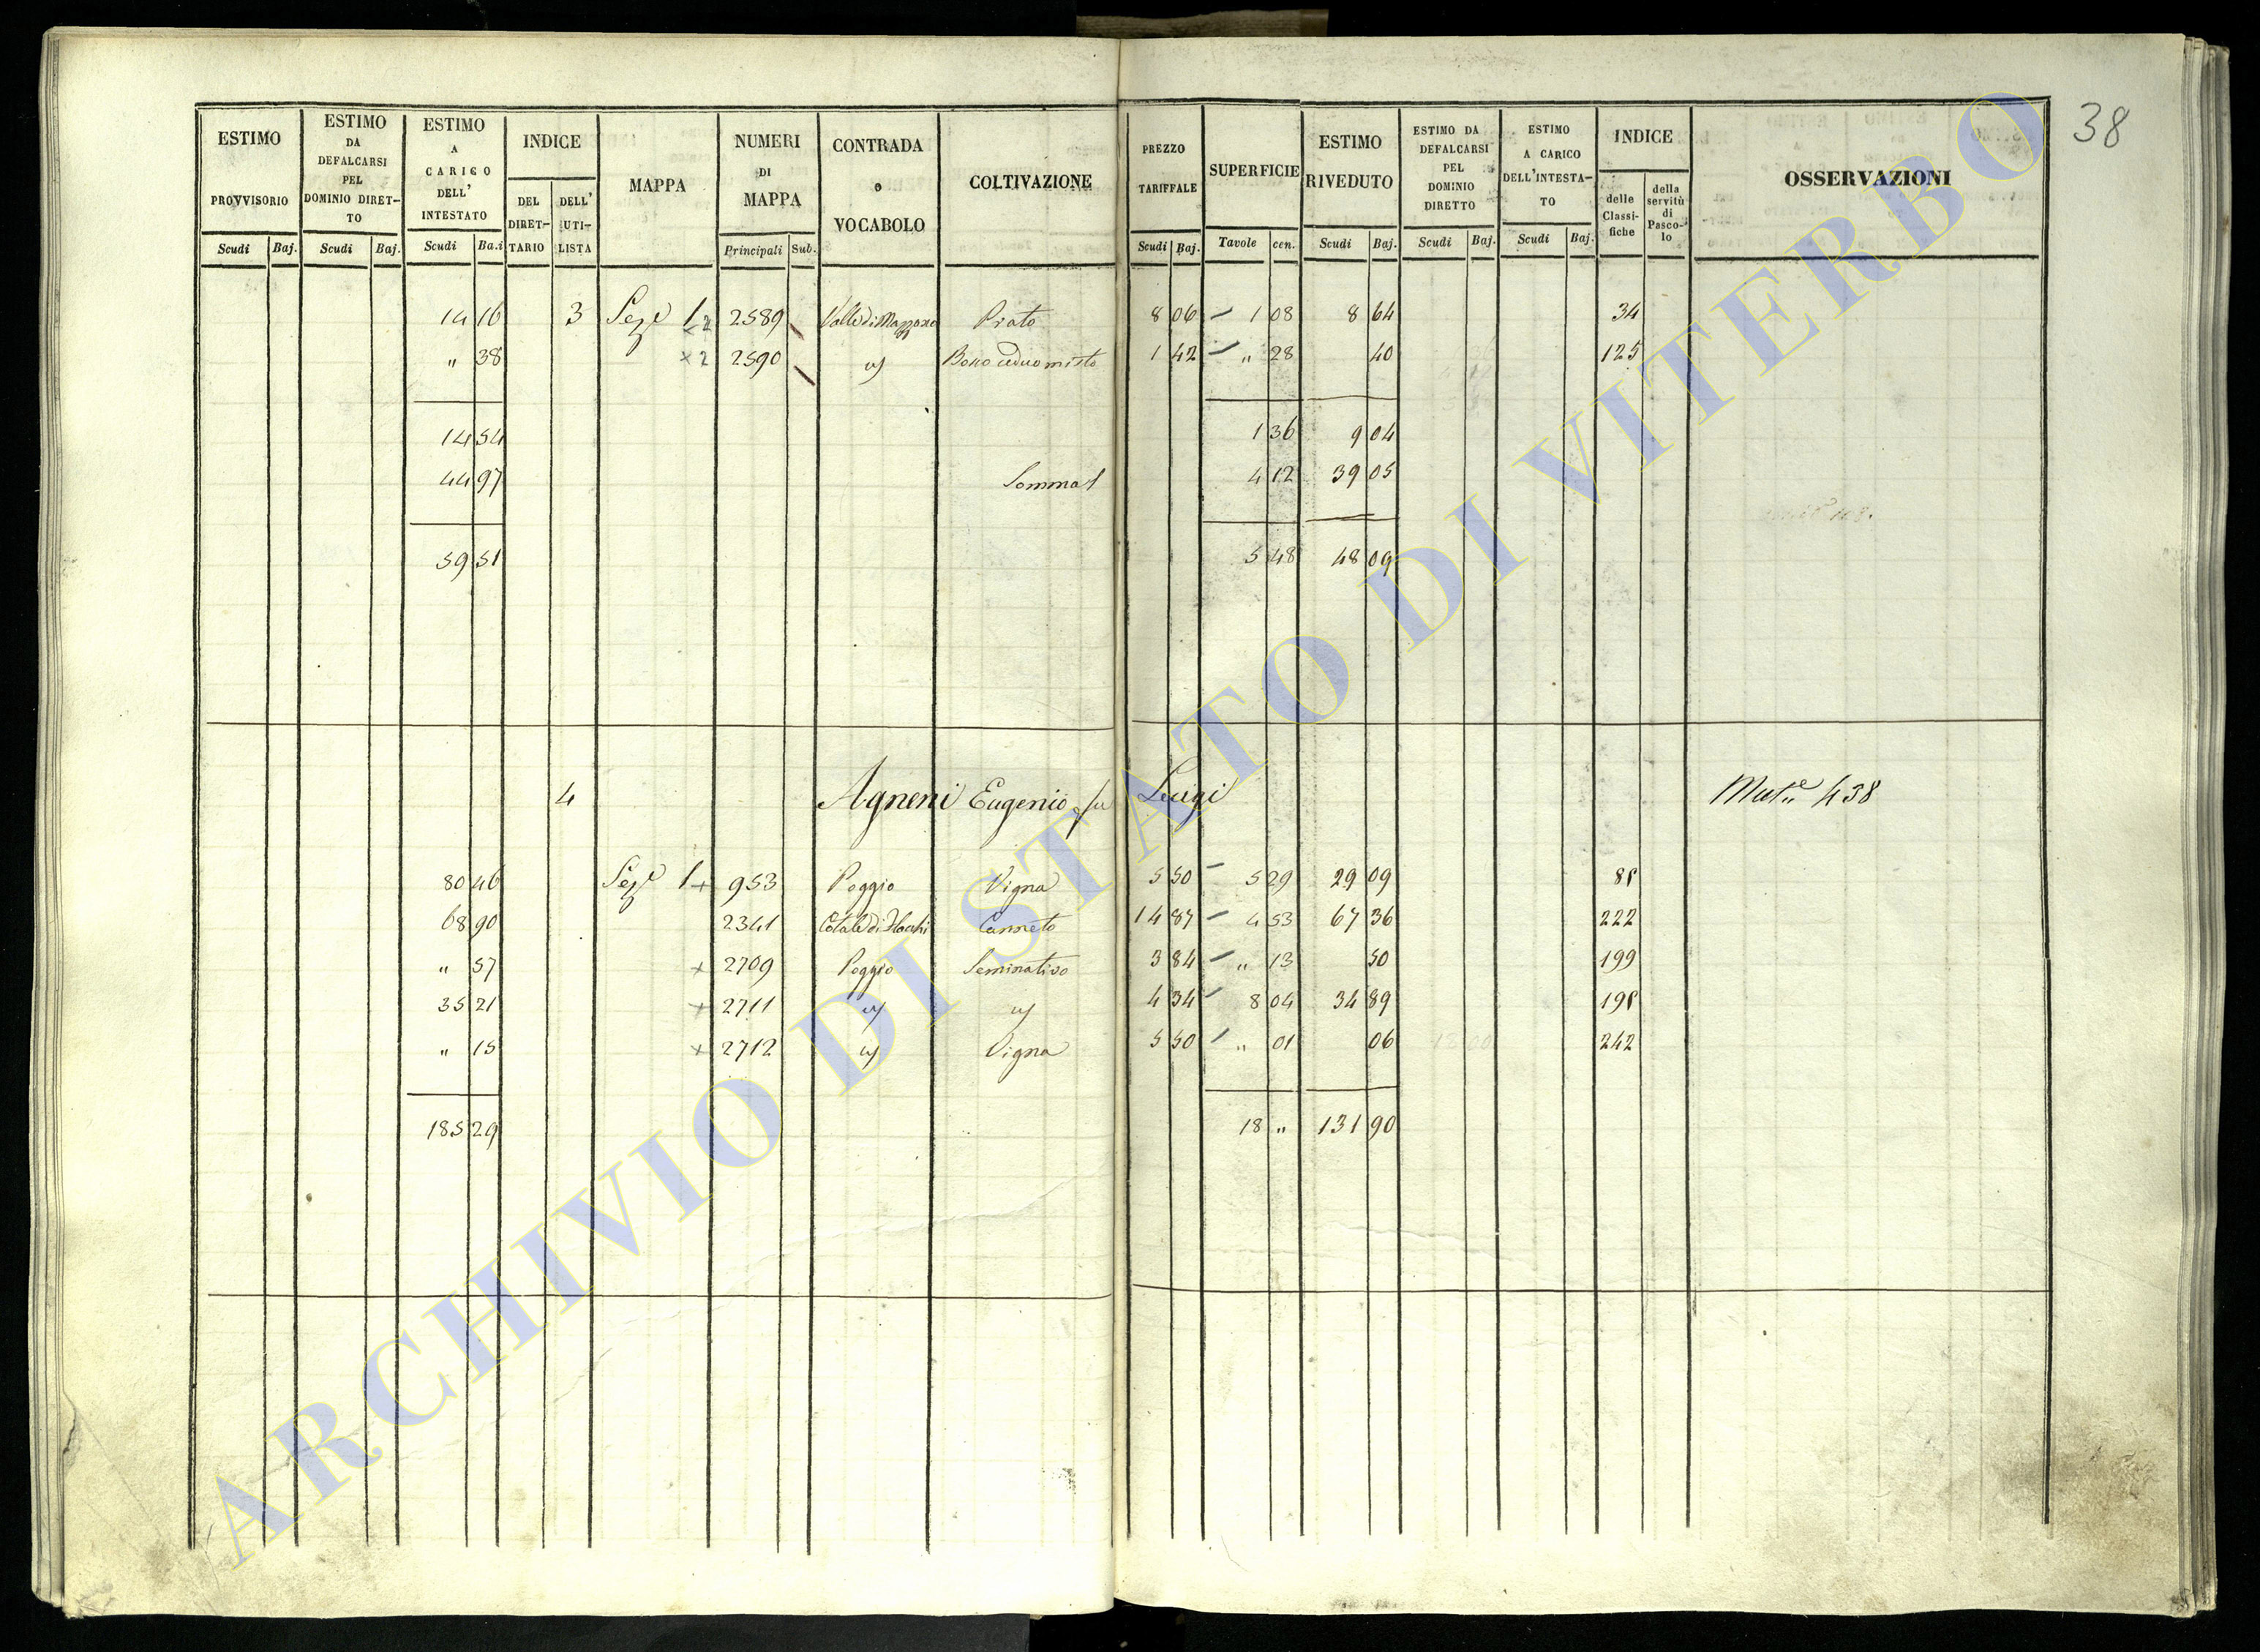 38
ESTIMO PROVVISORIO | ESTIMO DA DEFALCARSI PEL DOMINIO DIRET-TO | ESTIMO A CARICO DELL' INTESTATO | INDICE | MAPPA | NUMERI DI MAPPA | CONTRADA o VOCABOLO | COLTIVAZIONE | PREZZO TARIFFALE | SUPERFICIE | ESTIMO RIVEDUTO | ESTIMO DA DEFALCARSI PEL DOMINIO DIRETTO | ESTIMO A CARICO DELL'INTESTA-TO | INDICE | OSSERVAZIONI
DEL DIRET-TARIO | DELL' UTI-LISTA | delle Classi-fiche | della servitù di Pasco-lo
Scudi | Baj. | Scudi | Baj. | Scudi | Ba.i | Principali | Sub. | Scudi | Baj. | Tavole | cen. | Scudi | Baj. | Scudi | Baj. | Scudi | Baj.
14 16 | 3 | Sez.e 1 x2 | 2589 | Valle di Mazzano | Prato | 8 06 | 1 08 | 8 64 | 34
" 38 | x2 | 2590 | | Bosco ceduo misto | 1 42 | " 28 | 40 | 125
14 54 | 1 36 | 9 04
44 97 | Somma 1 | 4 12 | 39 05
59 51 | 5 48 | 48 09
4 | Agneni Eugenio fu Luigi | 438
80 46 | Sez.e 1 + | 953 | Poggio | Vigna | 5 50 | 5 29 | 29 09
68 90 | 2341 | | Canneto | 14 87 | 4 53 | 67 36 | 222
" 57 | x | 2709 | Poggio | Seminativo | 3 84 | " 13 | 50 | 199
35 21 | + | 2711 | | | 4 34 | 8 04 | 34 89
" 15 | x | 2712 | | Vigna | 5 50 | " 01 | 06 | 242
185 29 | 18 " | 131 90
ARCHIVIO DI STATO DI VITERBO